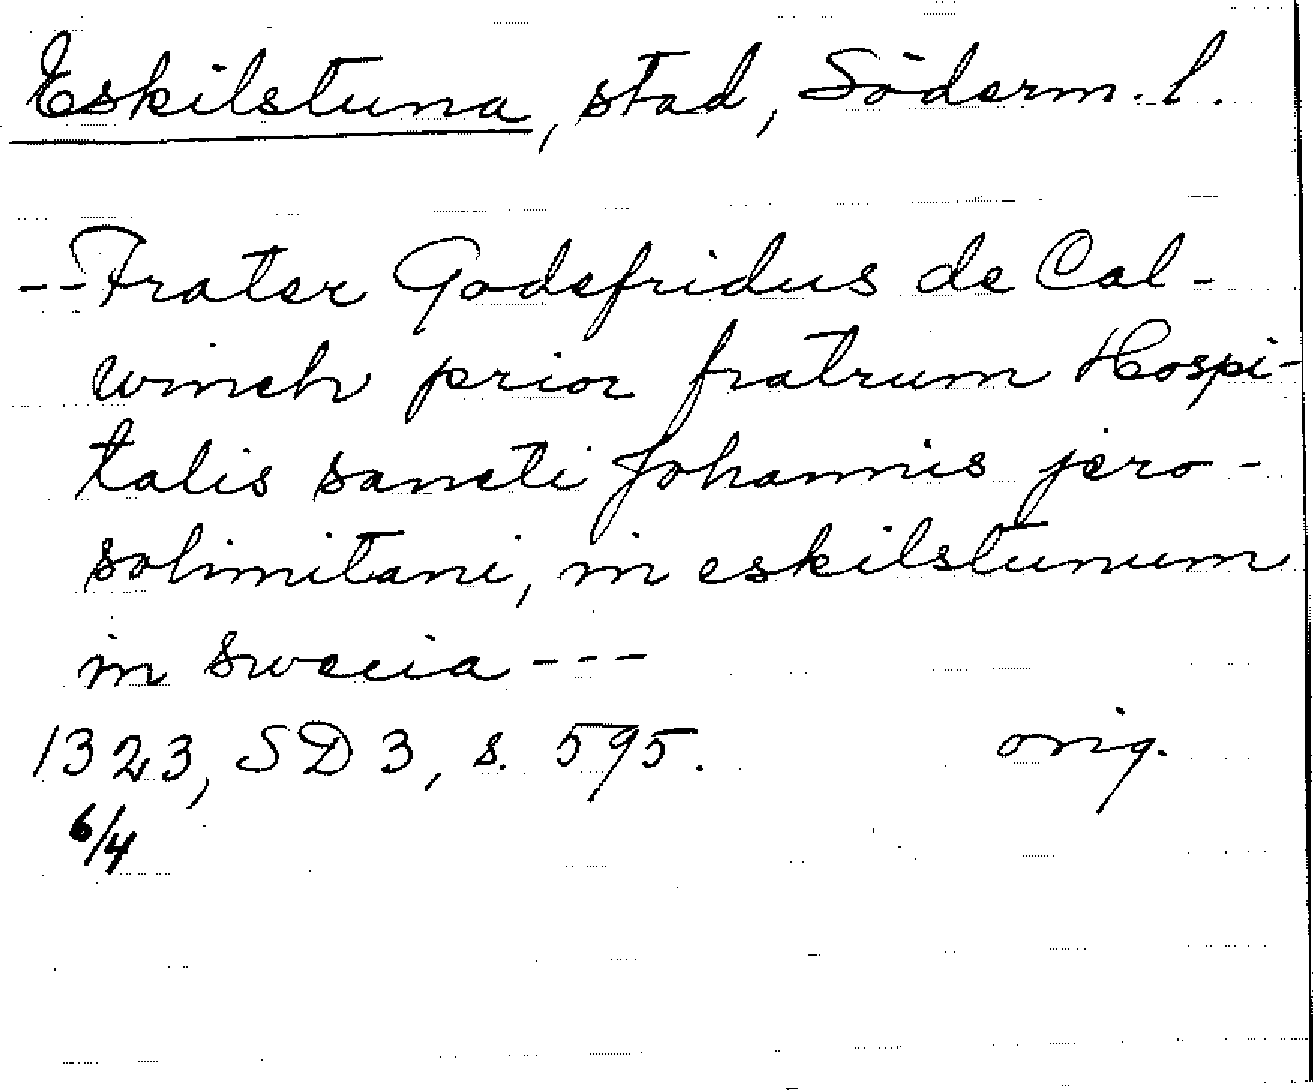 Eskilstuna, stad, Söderm. l.
-- Frater Godefridus de Cal-
winch prior fratrum Hospi-
talis sancti Johannis jero-
solimitani, in eskilstunum
in swecia ---
1323, SD 3, s. 595. orig.
6/4